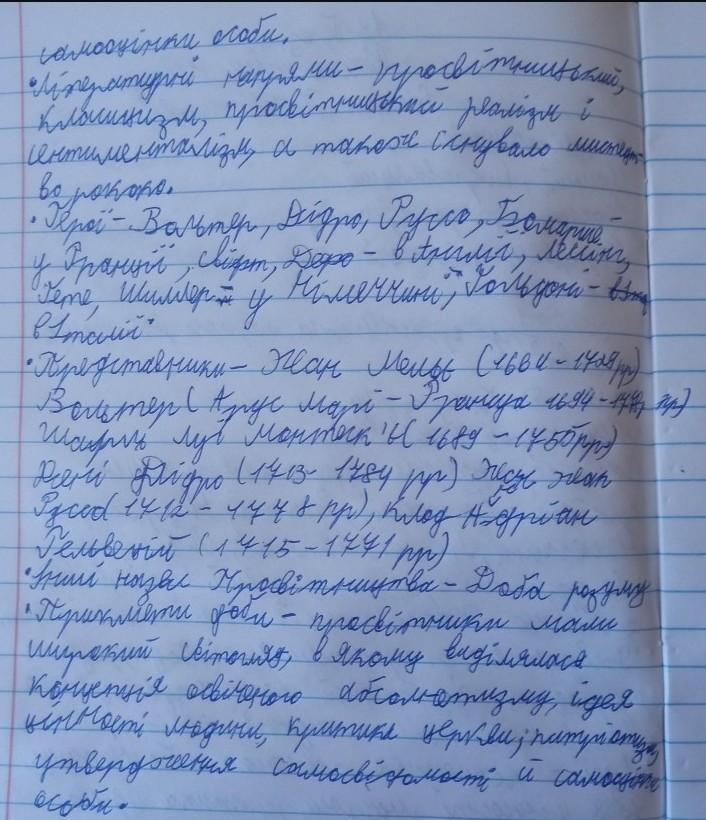 самооцінки особи.
•Літературні напрями – просвітницький,
класицизм, просвітницький реалізм і
сентименталізм, а також існувало мистецт-
во рококо.
•Герої – Вольтер, Дідро, Руссо, Бомарше –
у Франції, Свіфт, Дефо – в Англії, Лесінг,
Гете, Шиллер – у Німеччині, Гольдоні –
в Італії
•Представники – Жан Мельє (1664 – 1729 рр)
Вольтер (Аруе Марі – Франсуа 1694 – рр)
Шарль Луї Монтеск'є (1689 – 1755 рр)
Дені Дідро (1713 – 1784 рр) Жан Жак
Руссо (1712 – 1778 рр), Клод Адріан
Гельвецій (1715 – 1771 рр)
•Інші назви Просвітництва – Доба розуму
•Прикмети доби – просвітники мали
широкий світогляд, в якому виділялася
концепція освіченого абсолютизму, ідея
цінності людини, критика церкви, патріотизм,
утвердження самосвідомості й самооцінки
особи.